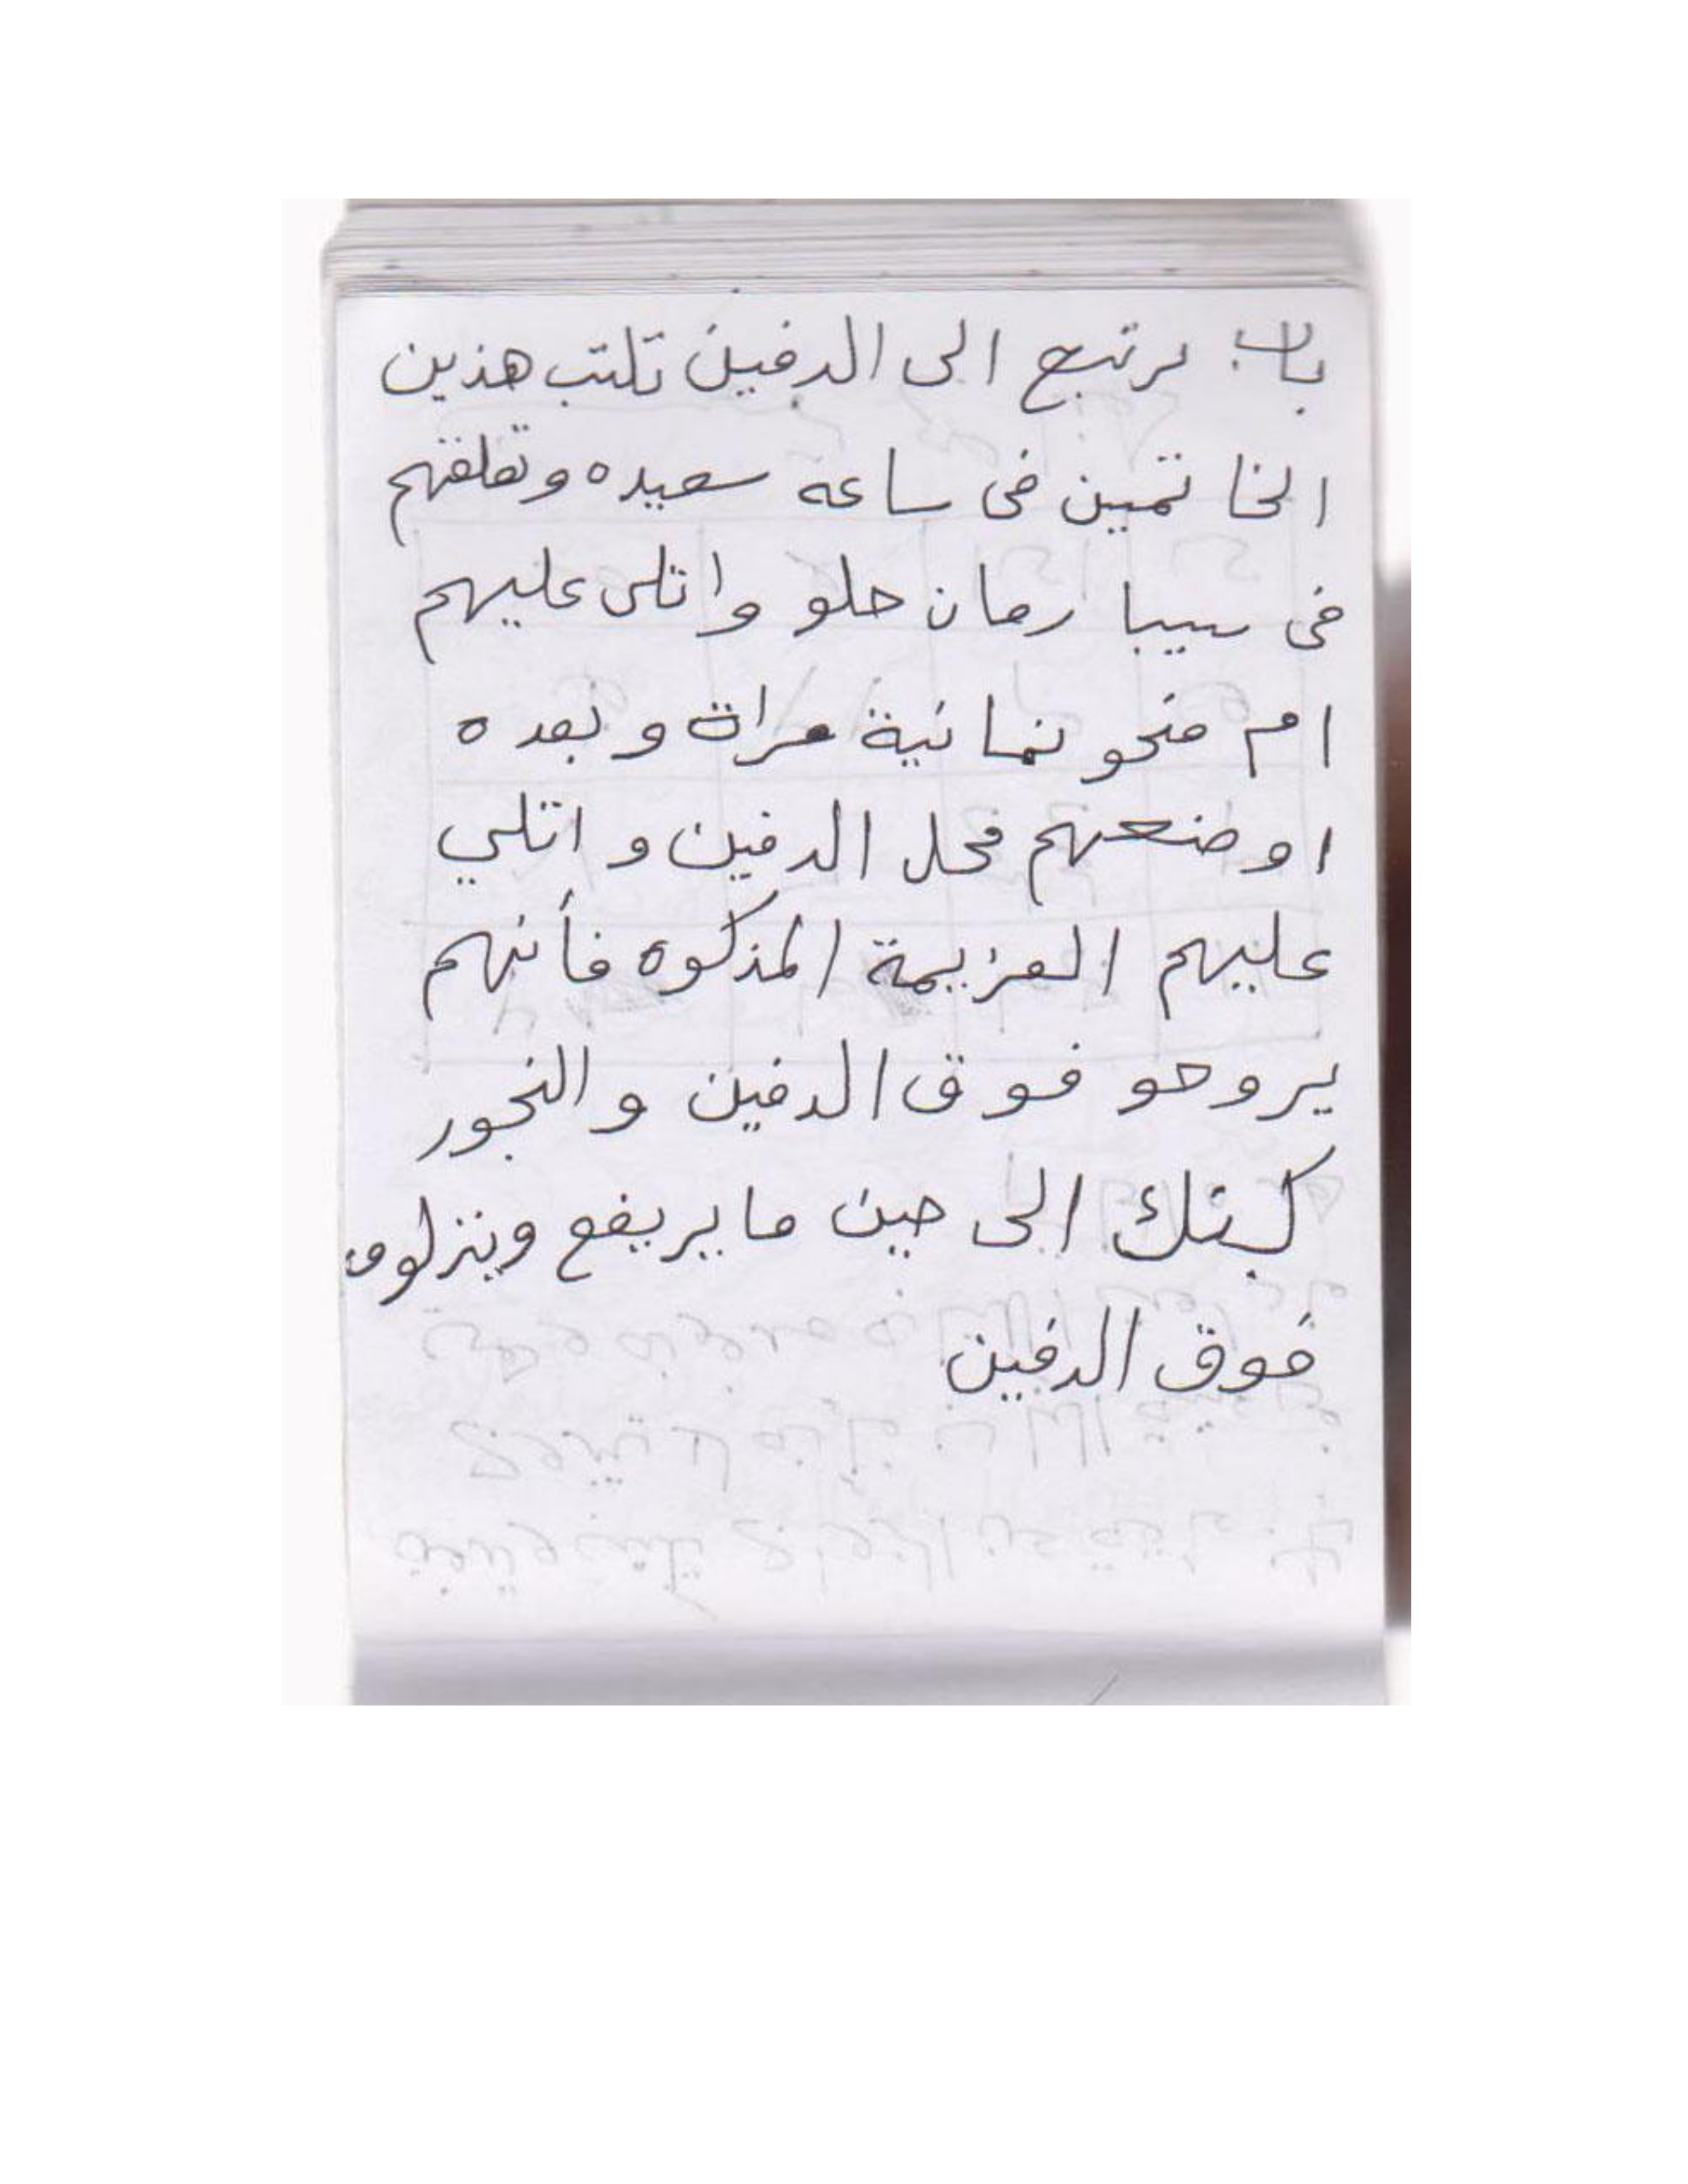 باب يرتبج الى الدفين تكتب هذين
الخاتمين فى ساعه سعيده وتعلقهم
فى سيبا رمان حلو واتلى عليهم
ام منحو ثمانية مراة وبعده
اوضعهم محل الدفين واتلي
عليهم العزيمة المذكوه فأنهم
يروحو فوق الدفين والبخور
كبتك الى حين ما يريفع وينزلو
فوق الدفين